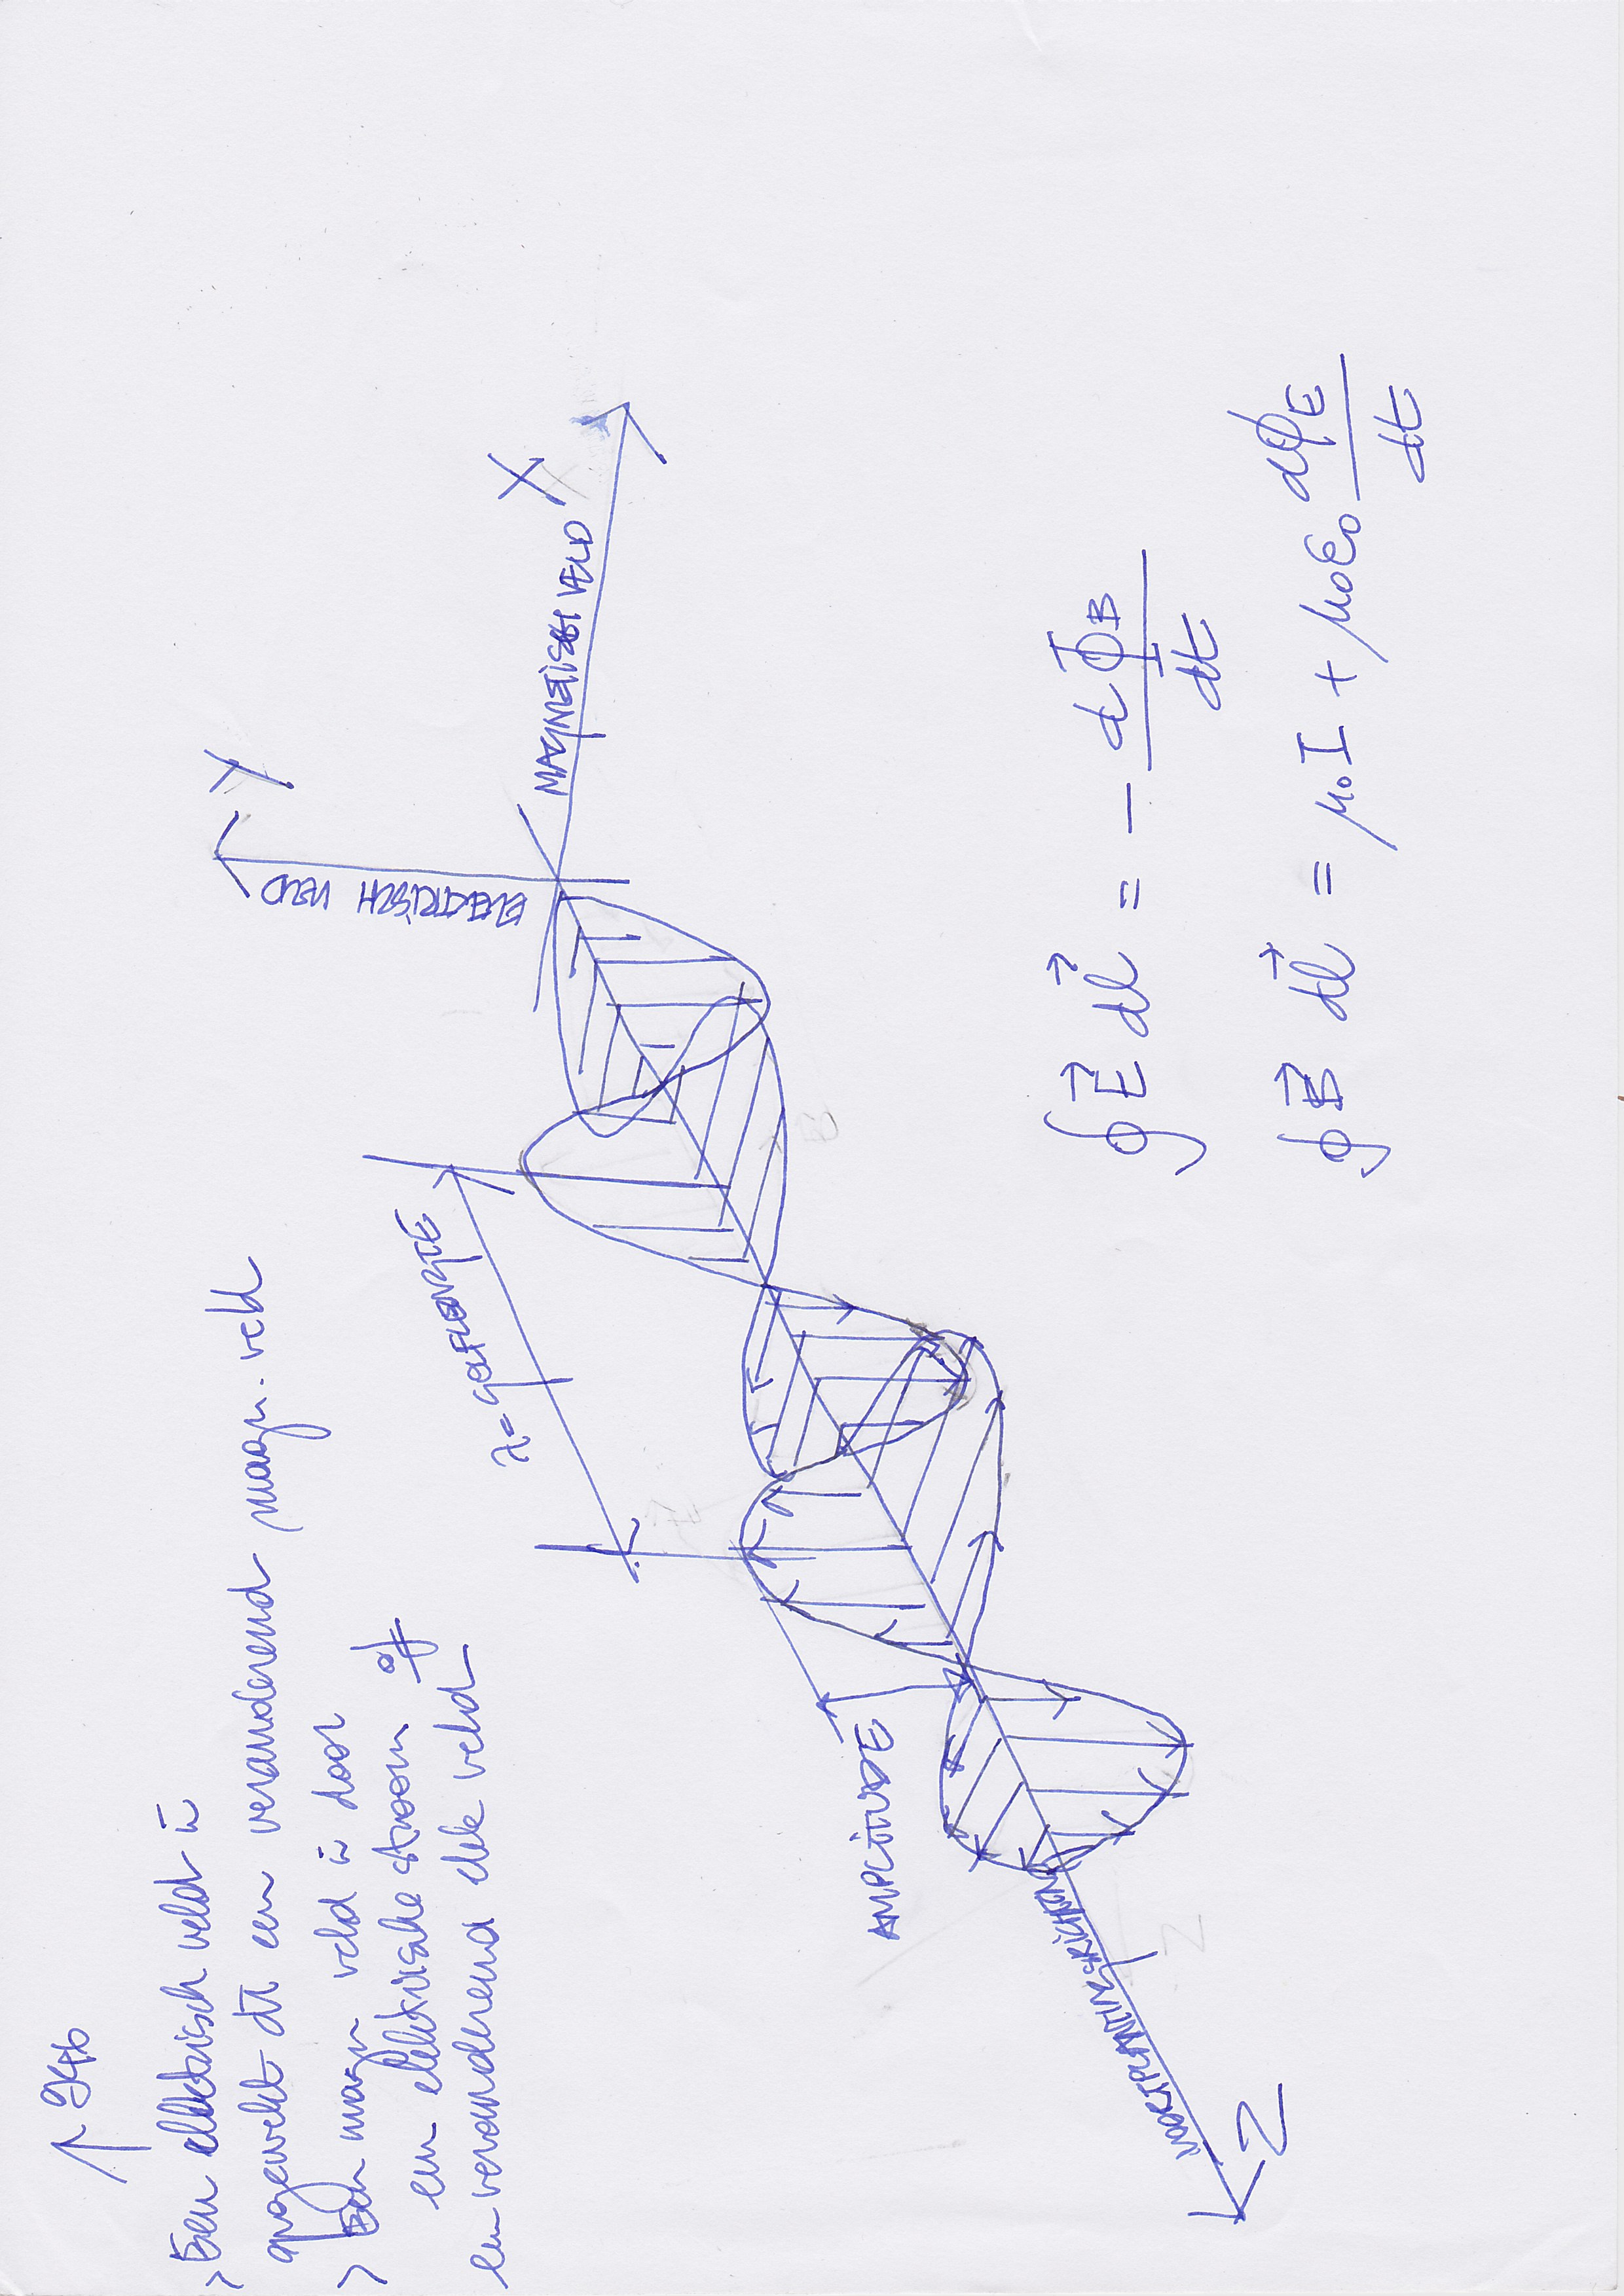 ↑ 9Hb
> Een elektrisch veld is
opgewekt dr een veranderend magn. veld
> Een magn veld is door
een elektrische stroom of
een veranderend elek veld
Y
ELEKTRISCH VELD
MAGNETISCH VELD
X
λ = GOLFLENGTE
AMPLITUDE
VOORTPLANTINGSRICHTING
Z
∮E⃗ dl⃗ = - dΦB/dt
∮B⃗ dl⃗ = μ₀I + μ₀ε₀ dφE/dt